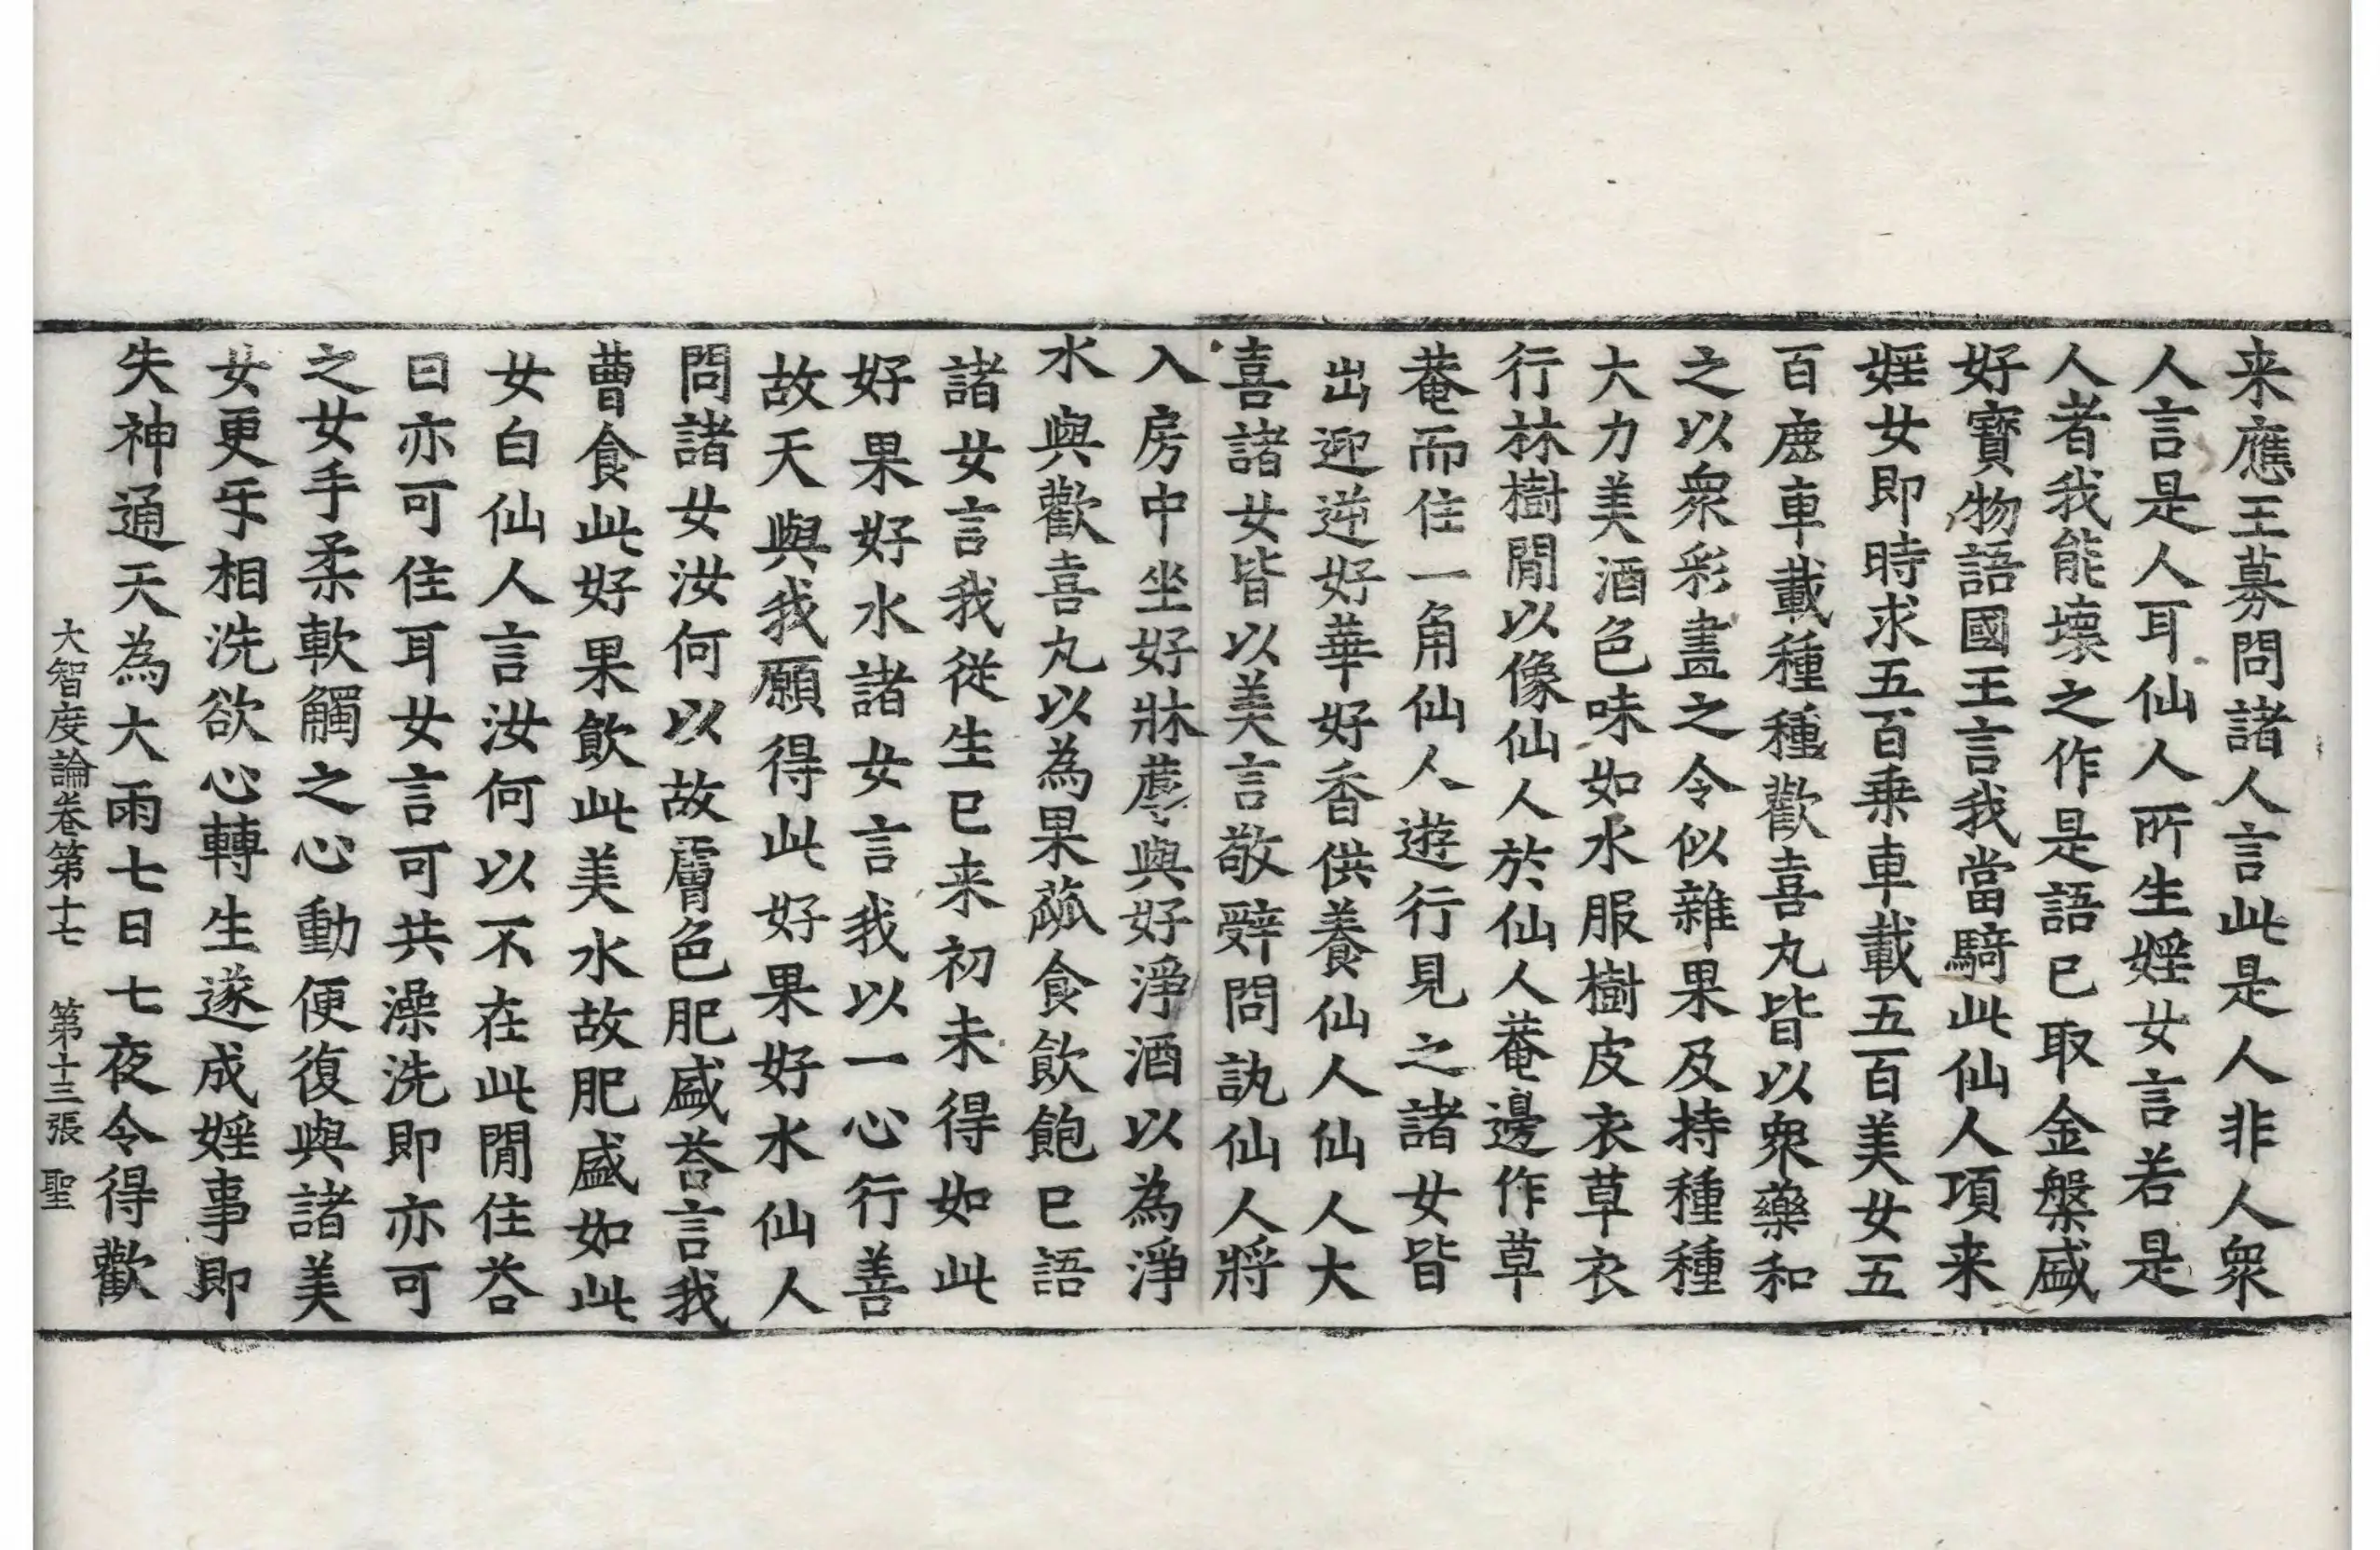 来應王募問諸人言此是人非人衆
人言是人耳仙人所生婬女言若是
人者我能壞之作是語已取金槃盛
好寶物語國王言我當騎此仙人項来
婬女即時求五百乗車載五百美女五
百鹿車載種種歡喜丸皆以衆藥和
之以衆彩畫之令似雜果及持種種
大力美酒色味如水服樹皮衣草衣
行林樹閒以像仙人於仙人菴邊作草
菴而住一角仙人遊行見之諸女皆
出迎逆好華好香供養仙人仙人大
喜諸女皆以美言敬辤問訊仙人將
入房中坐好牀蓐與好淨酒以為淨
水與歡喜丸以為果蓏食飲飽已語
諸女言我従生已来初未得如此
好果好水諸女言我以一心行善
故天與我願得此好果好水仙人
問諸女汝何以故膚色肥盛荅言我
曹食此好果飲此美水故肥盛如此
女白仙人言汝何以不在此閒住荅
曰亦可住耳女言可共澡洗即亦可
之女手柔軟觸之心動便復與諸美
女更㸦相洗欲心轉生遂成婬事即
失神通天為大雨七日七夜令得歡
大智度論卷第十七　第十三張　聖